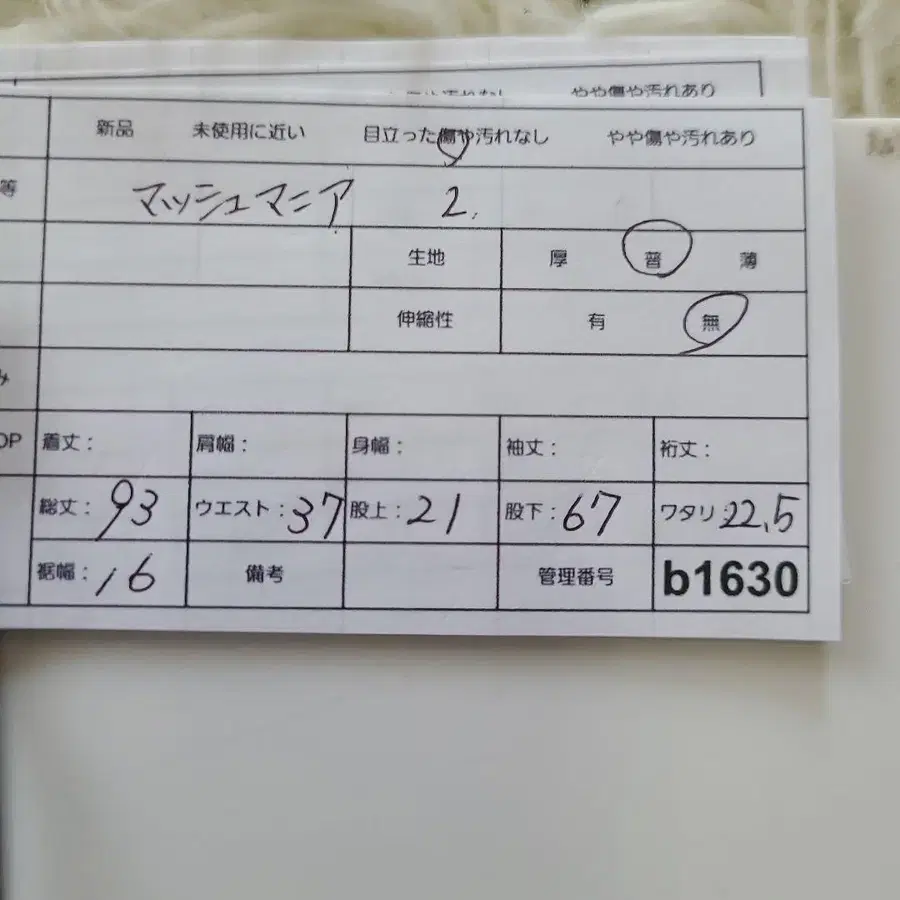 やや傷や汚れあり
新品 未使用に近い 目立った傷や汚れなし やや傷や汚れあり
等 マッシュマニア 2.
生地 厚 普 薄
伸縮性 有 無
み
OP 着丈: 肩幅: 身幅: 袖丈: 裄丈:
総丈: 93 ウエスト: 37 股上: 21 股下: 67 ワタリ: 22.5
裾幅: 16 備考 管理番号 b1630